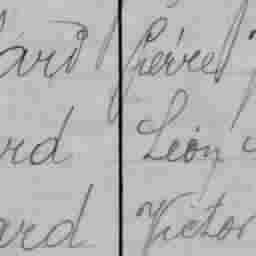 ard Pierre
rd Léon
ard Victor